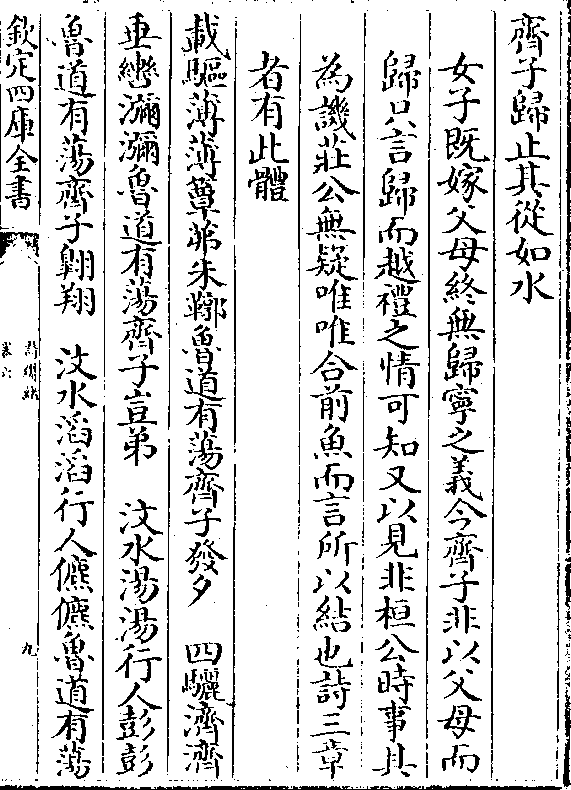 齊子歸止其從如水
女子既嫁父母終無歸寧之義今齊子非以父母而
歸只言歸而越禮之情可知又以見非桓公時事其
為譏莊公無疑唯唯合前魚而言所以結也詩三章
者有此體
載驅薄薄簟茀朱鞹魯道有蕩齊子發夕　四驪濟濟
垂轡瀰瀰魯道有蕩齊子豈弟　汶水湯湯行人彭彭
魯道有蕩齊子翺翔　汶水滔滔行人儦儦魯道有蕩
欽定四庫全書
卷六
九